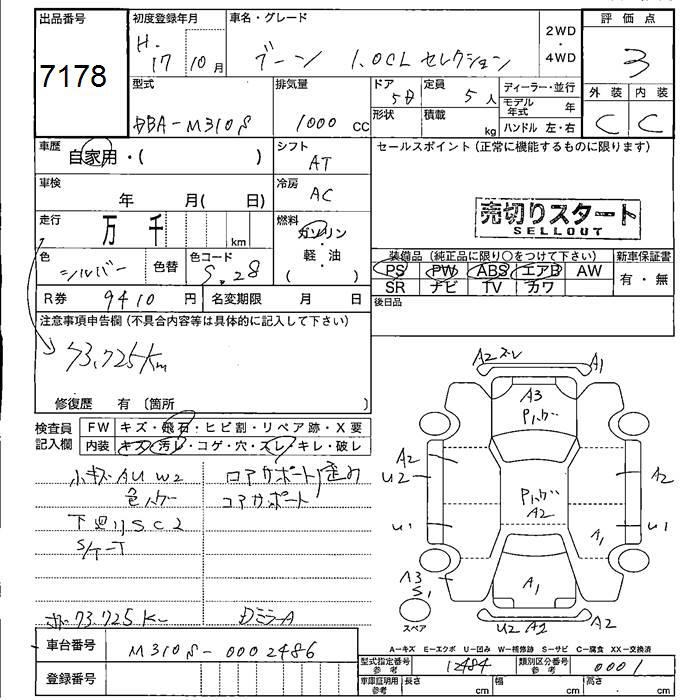 出品番号
7178
初度登録年月
H.
17 10月
車名・グレード
ブーン 1.0CL セレクション
2WD
・
4WD
評価点
3
外装 内装
C C
型式
DBA-M310S
排気量
1000 cc
ドア
5D
形状
定員
5人
積載
kg
ディーラー・並行
モデル年式 年
ハンドル 左・右
車歴
自家用・( )
シフト
AT
セールスポイント(正常に機能するものに限ります)
売切りスタート
SELLOUT
車検
年 月( 日)
冷房
AC
走行
万 千 km
燃料
ガソリン
・
軽・油
( )
色
シルバー
色替
色コード
S.28
R券 9410 円
名変期限 月 日
装備品(純正品に限り○をつけて下さい)
PS PW ABS エアB AW
SR ナビ TV カワ
新車保証書
有・無
後日品
注意事項申告欄(不具合内容等は具体的に記入して下さい)
73,725Km
修復歴 有〔箇所 〕
検査員記入欄
FW キズ・飛石・ヒビ割・リペア跡・X要
内装 キズ・汚レ・コゲ・穴・スレ・キレ・破レ
小キズ AU W2
色ハゲ
下廻りSC2
S/T-T
コアサポート歪み
コアサポート
73.725K
A2 A1
A3
Pハゲ
A2
U2
Pハゲ
A2
A2
U1
A1
U1
A3
S1
A1
スペア
U2 A2
A-キズ E-エクボ U-凹み W-補修跡 S-サビ C-腐食 XX-交換済
車台番号
M310S-0002486
登録番号
型式指定番号参考 12484
類別区分番号参考 0001
車庫証明用参考
長さ cm
幅 cm
高さ cm